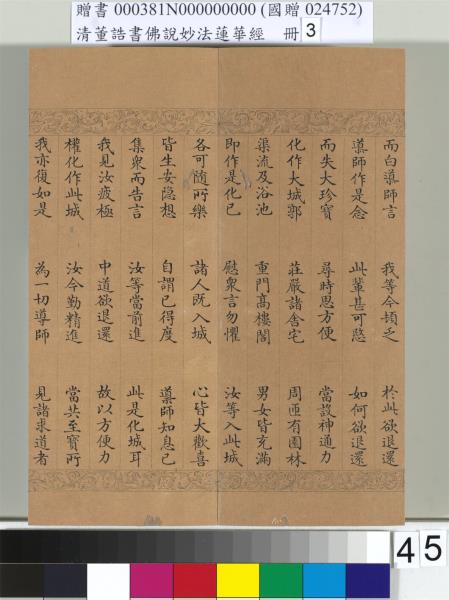 贈書 000381N000000000 (國贈 024752)
清董誥書佛說妙法蓮華經 冊 3
而白導師言 我等今頓乏 於此欲退還
導師作是念 此輩甚可愍 如何欲退還
而失大珍寶 尋時思方便 當設神通力
化作大城郭 莊嚴諸舍宅 周匝有園林
渠流及浴池 重門高樓閣 男女皆充滿
即作是化已 慰眾言勿懼 汝等入此城
各可隨所樂 諸人既入城 心皆大歡喜
皆生安隱想 自謂已得度 導師知息已
集眾而告言 汝等當前進 此是化城耳
我見汝疲極 中道欲退還 故以方便力
權化作此城 汝今勤精進 當共至寶所
我亦復如是 為一切導師 見諸求道者
45